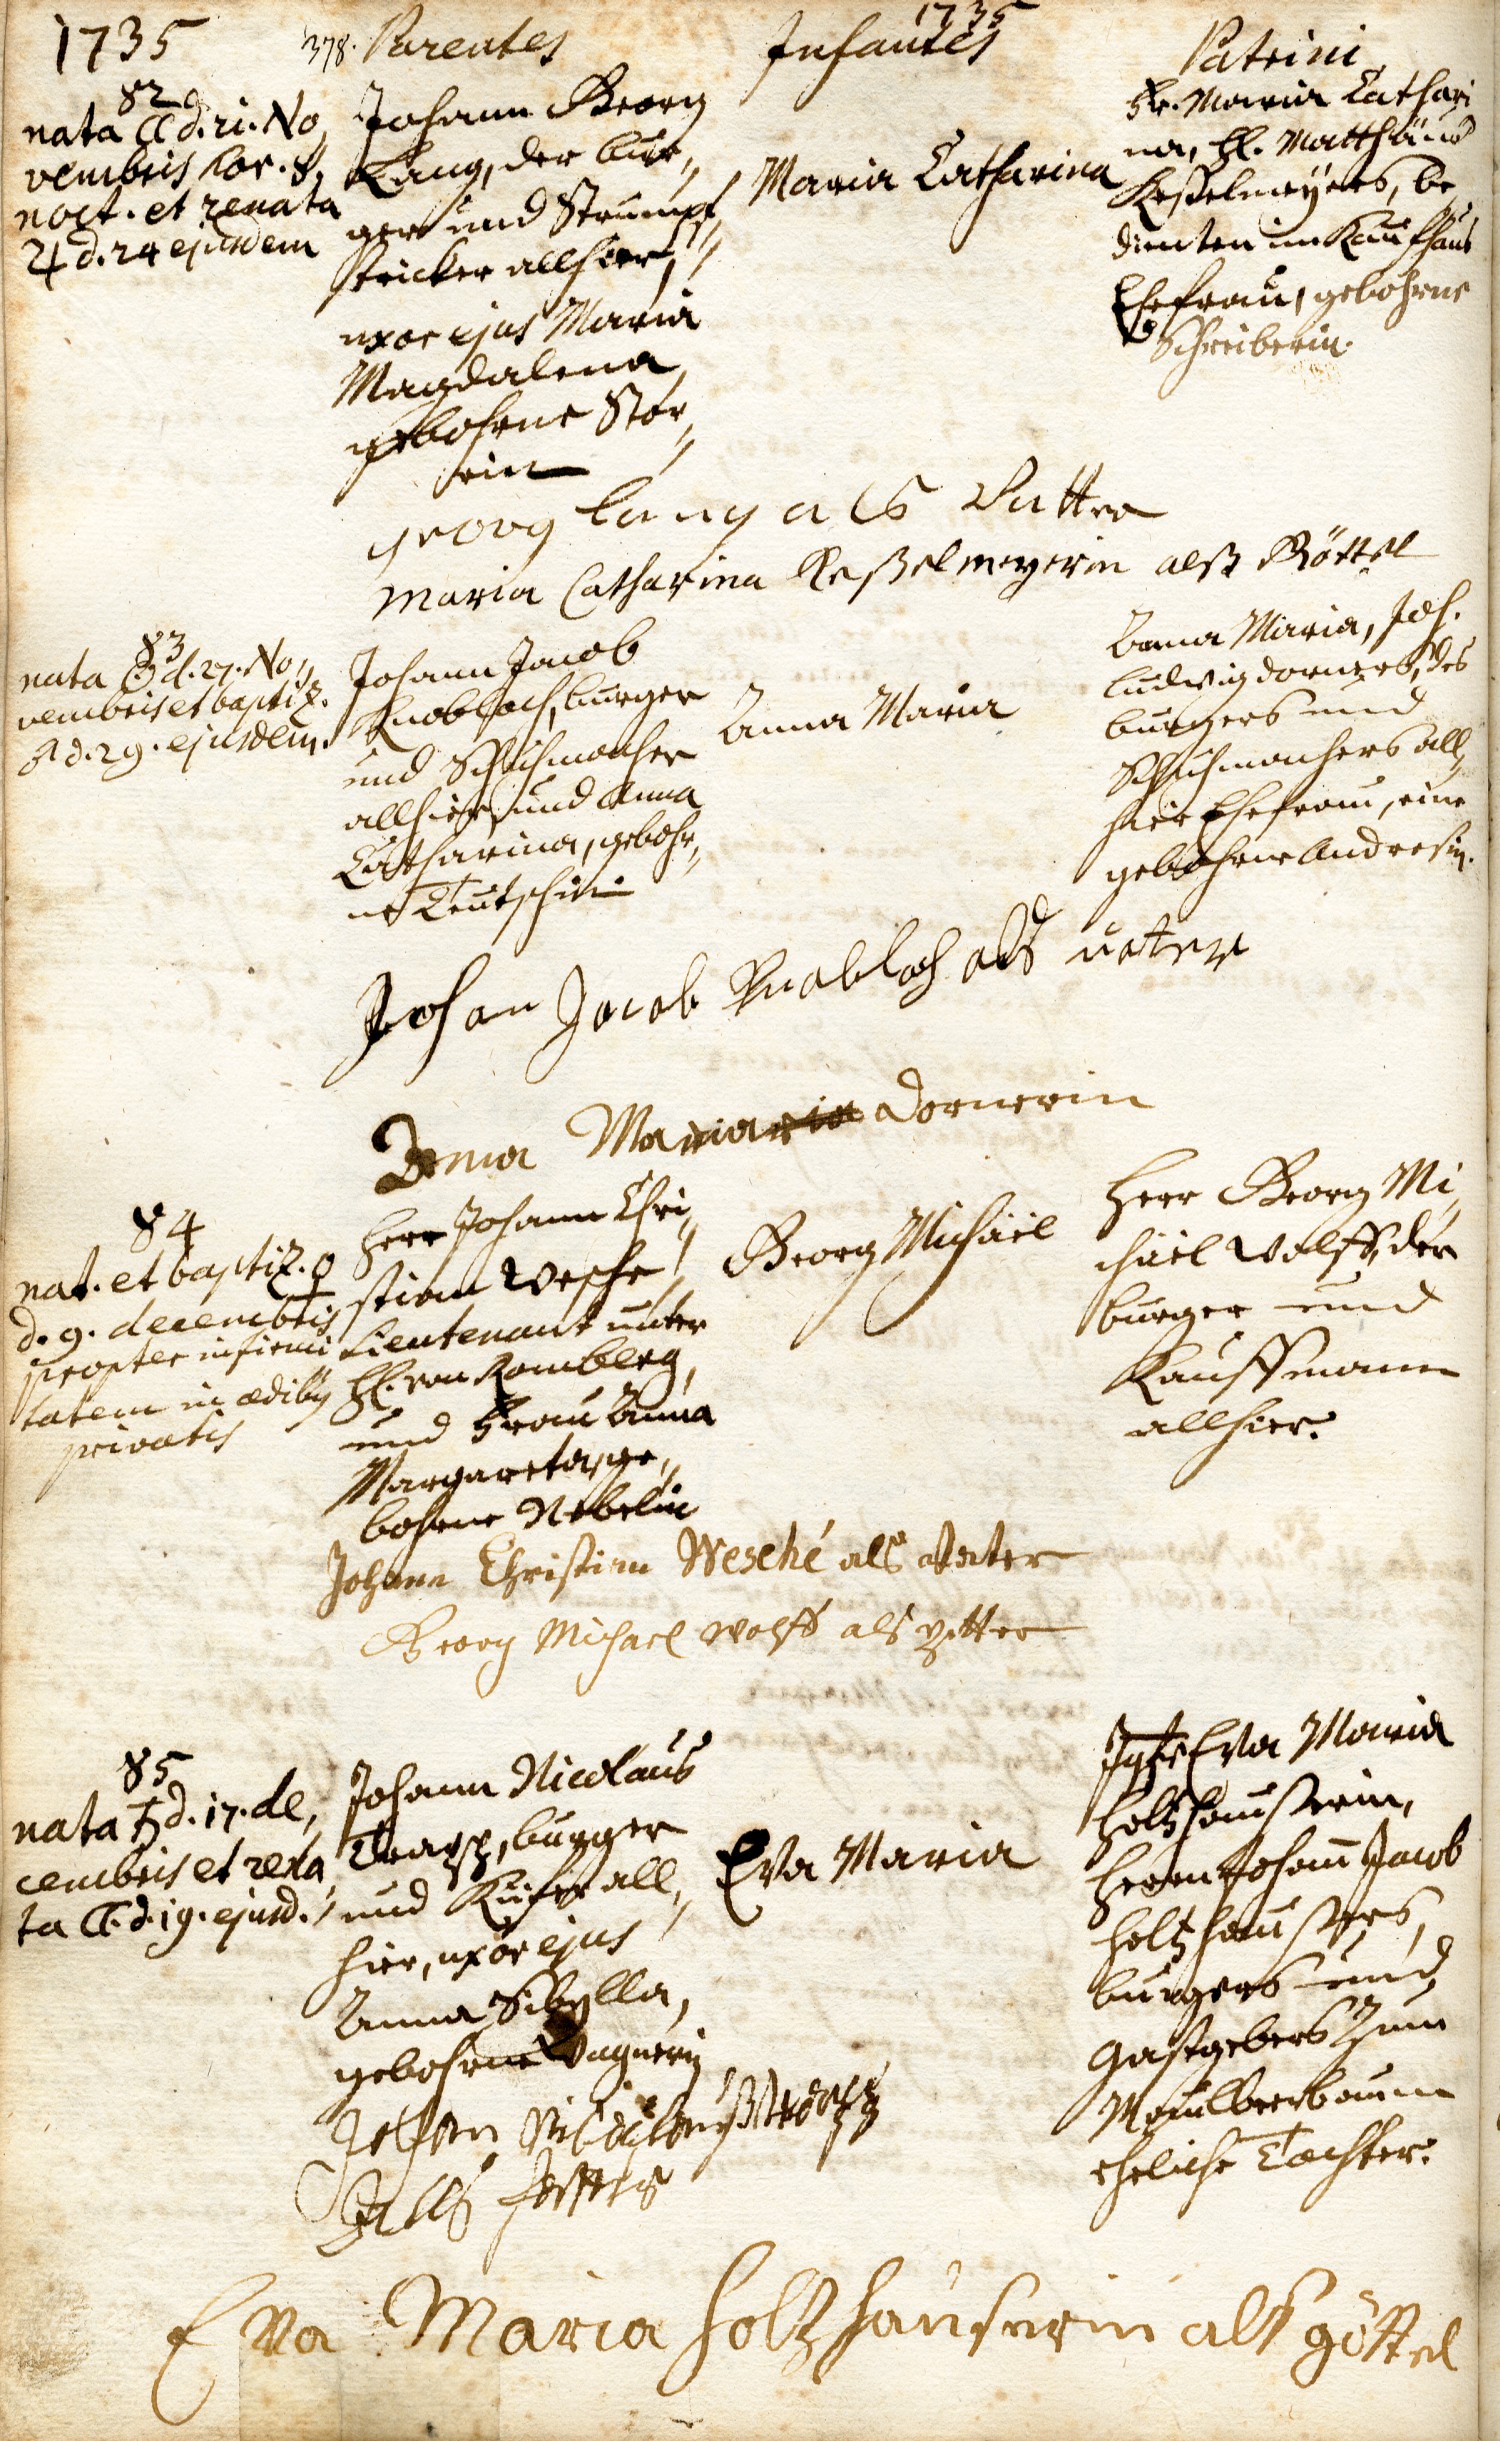 1735
378. Parentes
Infantes
1735
Patrini
82
nata ☾ d. 21. No,,
vembris hor. 8.
noct. et renata
♃ d. 24 ejusdem
Johann Georg
Lang, der bur,,
ger und Strumpf,,
stricker allhier,
uxor ejus Maria
Magdalena,
gebohrne Stör,,
rin
Maria Catharina
Fr. Maria Cathari
na, H. Matthäus
Keßelmeyers, be
dienten im Kaufhaus
Ehefrau, gebohrne
Schreiberin.
georg Lang als Vatter
Maria Catharina Keßelmeyerin alß Göttel
83
nata ☉ d. 27. No,,
vembris et baptiz.
♂ d. 29. ejusdem.
Johann Jacob
Knobloch, burger
und Schuhmacher
allhier, und Anna
Catharina, gebohr,,
ne Teutschin
Anna Maria
Anna Maria, Joh.
Ludwig Dorners, des
burgers und
Schuhmachers all,,
hier Ehefrau, eine
gebohrne Andresin.
Johan Jacob Knobloch als vater
Anna Maria Dornerin
84
nat. et baptiz. ♀
d. 9. decembris
propter infirmi
tatem in ædibus
privatis
Herr Johann Chri,,
stian Wesche
Lieutenant unter
H. von Romberg,
und Frau Anna
Margareta, ge,,
bohrne Nebelin
Georg Michäel
Herr Georg Mi,,
chäel Wolff, der
burger und
Kauffmann
allhier.
Johann Christian Wesché als Vater
Georg Michael Wolff als Petter
85
nata ♄ d. 17. de,,
cembris et rena
ta ☾ d. 19. ejusd.
Johann Nicolaus
burger
und Küfer all,,
hier, uxor ejus
Anna Sibylla,
gebohrne Wagnerin
Eva Maria
Jgfr Eva Maria
Holtzhauserin,
Herrn Johann Jacob
Holtzhausers,
burgers und
Gastgebers Zum
Maulbeerbaum
eheliche Tochter.
Johan
Alls
Eva Maria Holtzhauserin als göttel